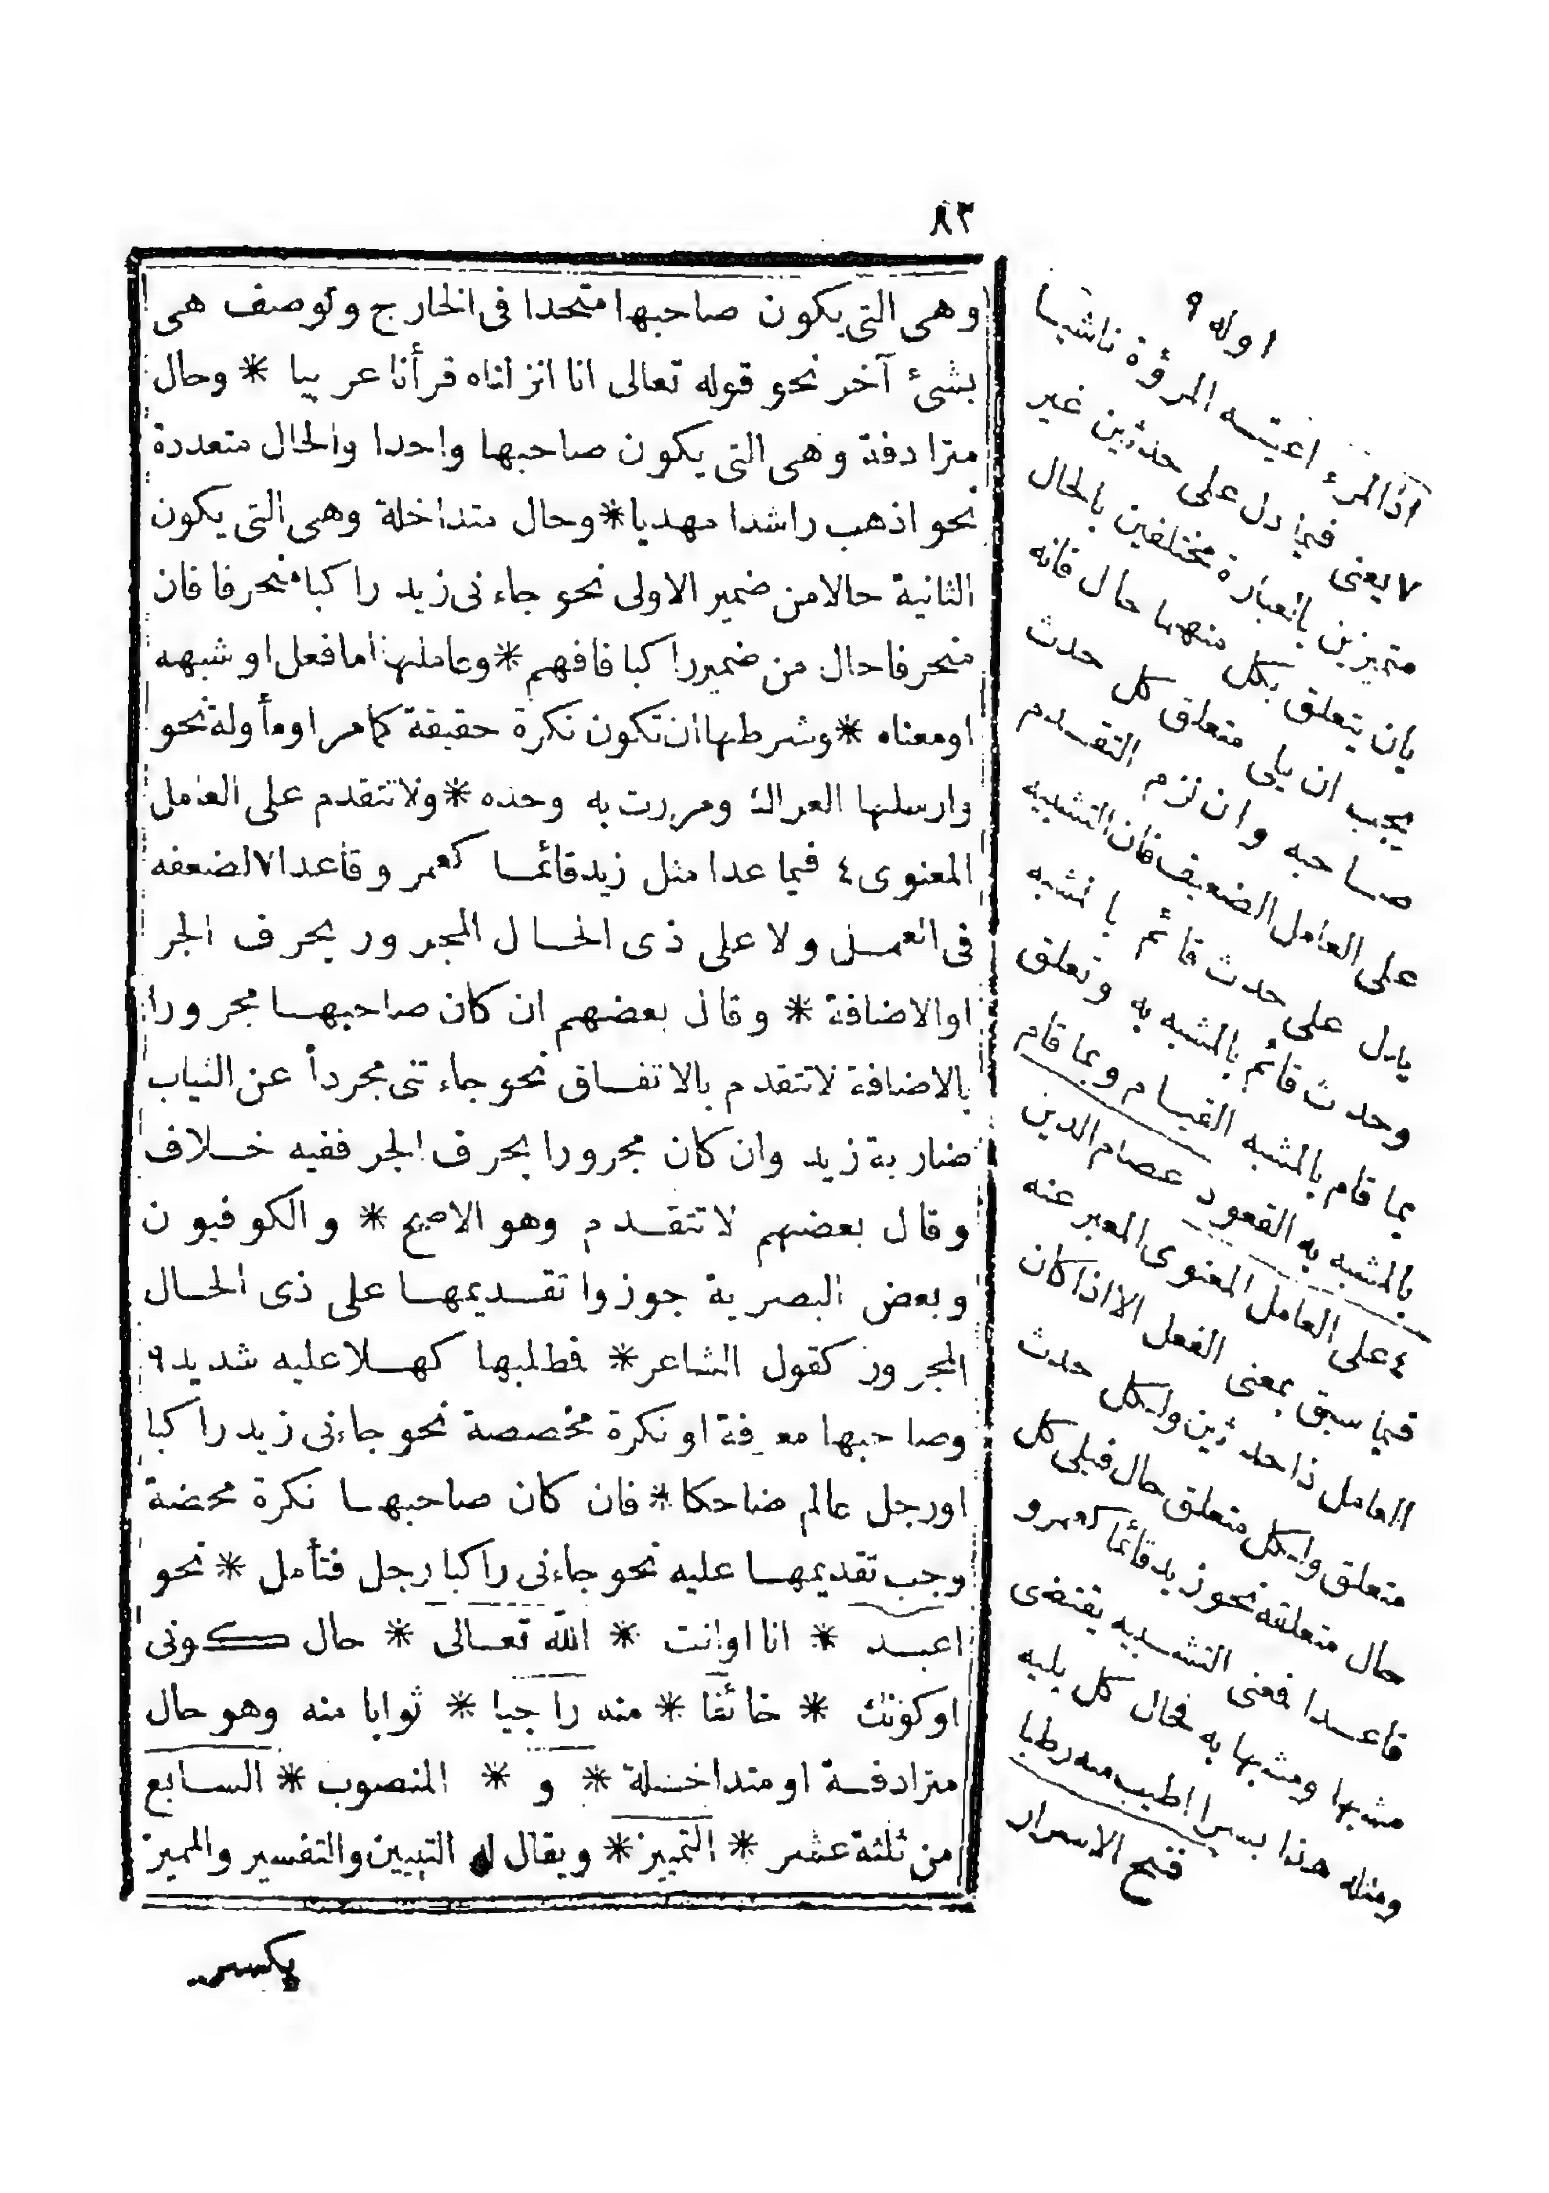 ٨٣
وهى التى يكون صاحبها متحدا فى الخارج وتوصف هى
بشئ آخر نحو قوله تعالى انا انزلناه قرأنا عربيا * وحال
مترادفة وهى التى يكون صاحبها واحدا والحال متعددة
نحو اذهب راشدا مهديا * وحال متداخلة وهى التى يكون
الثانية حالا من ضمير الاولى نحو جاءنى زيد راكبا منحرفا فان
منحرفا حال من ضمير راكبا فافهم * وعاملها اما فعل او شبهه
او معناه * وشرطها ان تكون نكرة حقيقة كما مر او مأولة نحو
وارسلها العراك ومررت به وحده * ولا تتقدم على العامل
المعنوى ٤ فيما عدا مثل زيد قائما كعمر و قاعدا ٧ لضعفه
فى العمل ولا على ذى الحال المجرور بحرف الجر
او الاضافة * وقال بعضهم ان كان صاحبها مجرورا
بالاضافة لا تتقدم بالاتفاق نحو جاءتنى مجرداً عن الثياب
ضاربة زيد وان كان مجرورا بحرف الجر ففيه خلاف
وقال بعضهم لا تتقدم وهو الاصح * والكوفيون
وبعض البصرية جوزوا تقديمها على ذى الحال
المجرور كقول الشاعر * فطلبها كهلا عليه شديد ٩
وصاحبها معرفة او نكرة مخصصة نحو جاءنى زيد راكبا
او رجل عالم ضاحكا * فان كان صاحبها نكرة محضة
وجب تقديمها عليه نحو جاءنى راكبا رجل فتأمل * نحو
اعبد * انا او انت * الله تعالى * حال كونى
او كونك * خائفا * منه راجيا * ثوابا منه وهو حال
مترادفة او متداخلة * و * المنصوب * السابع
من ثلثة عشر * التمييز * ويقال له التبيين والتفسير والمميز
بكسر
٩ اوله
اذا المرء اعيته المروؤة ناشيا
٧ يعنى فيما دل على حدثين غير
متميزين بالعبارة مختلفين بالحال
بان يتعلق بكل منهما حال فانه
يجب ان يلى متعلق كل حدث
صاحبه وان لزم التقدم
على العامل الضعيف فان التشبيه
يدل على حدث قائم بالمشبه
وحدث قائم بالمشبه به وتعلق
بما قام بالمشبه القيام وبما قام
بالمشبه به القعود عصام الدين
٤ على العامل المعنوى المعبر عنه
فيما سبق بمعنى الفعل الا اذا كان
العامل ذا حدثين ولكل حدث
متعلق ولكل متعلق حال فيلى كل
حال متعلقه نحو زيد قائما كعمرو
قاعدا فمعنى التشبيه يقتضى
مشبها ومشبها به فحال كل يليه
ومثله هذا بسرا اطيب منه رطبا
فتح الاسرار